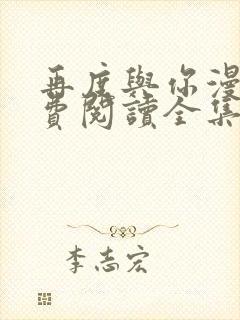 再度與你漫
費閱讀全集
李志宏